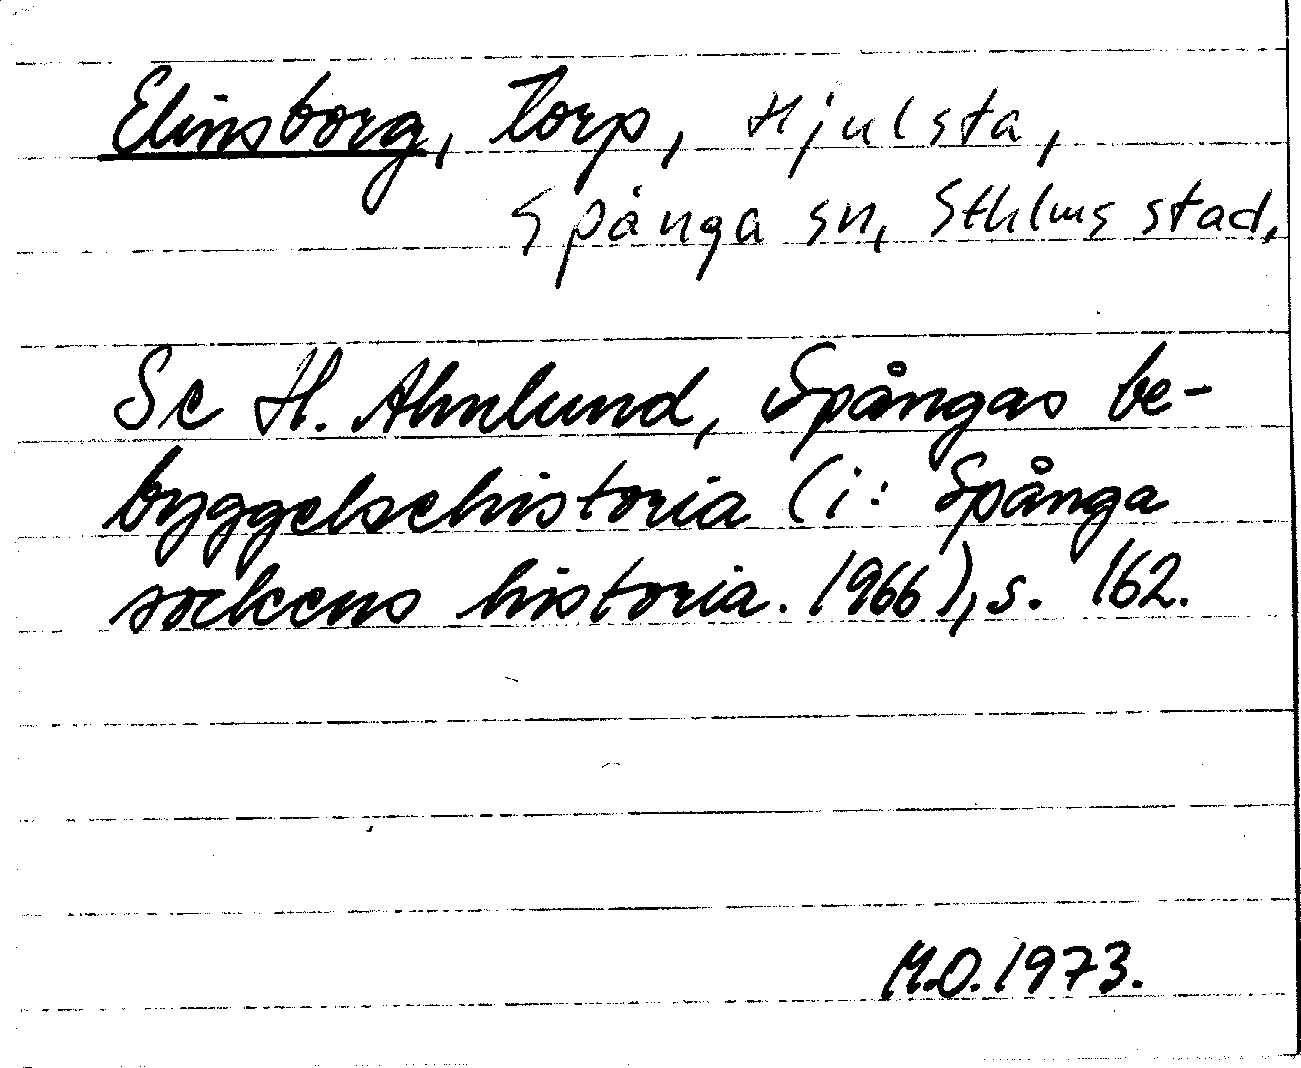 Elinsborg, torp, Hjulsta,
Spånga sn, Sthlms stad.
Se H. Ahnlund, Spångas be-
byggelsehistoria (i: Spånga
sockens historia. 1966), s. 162.
M.O. 1973.